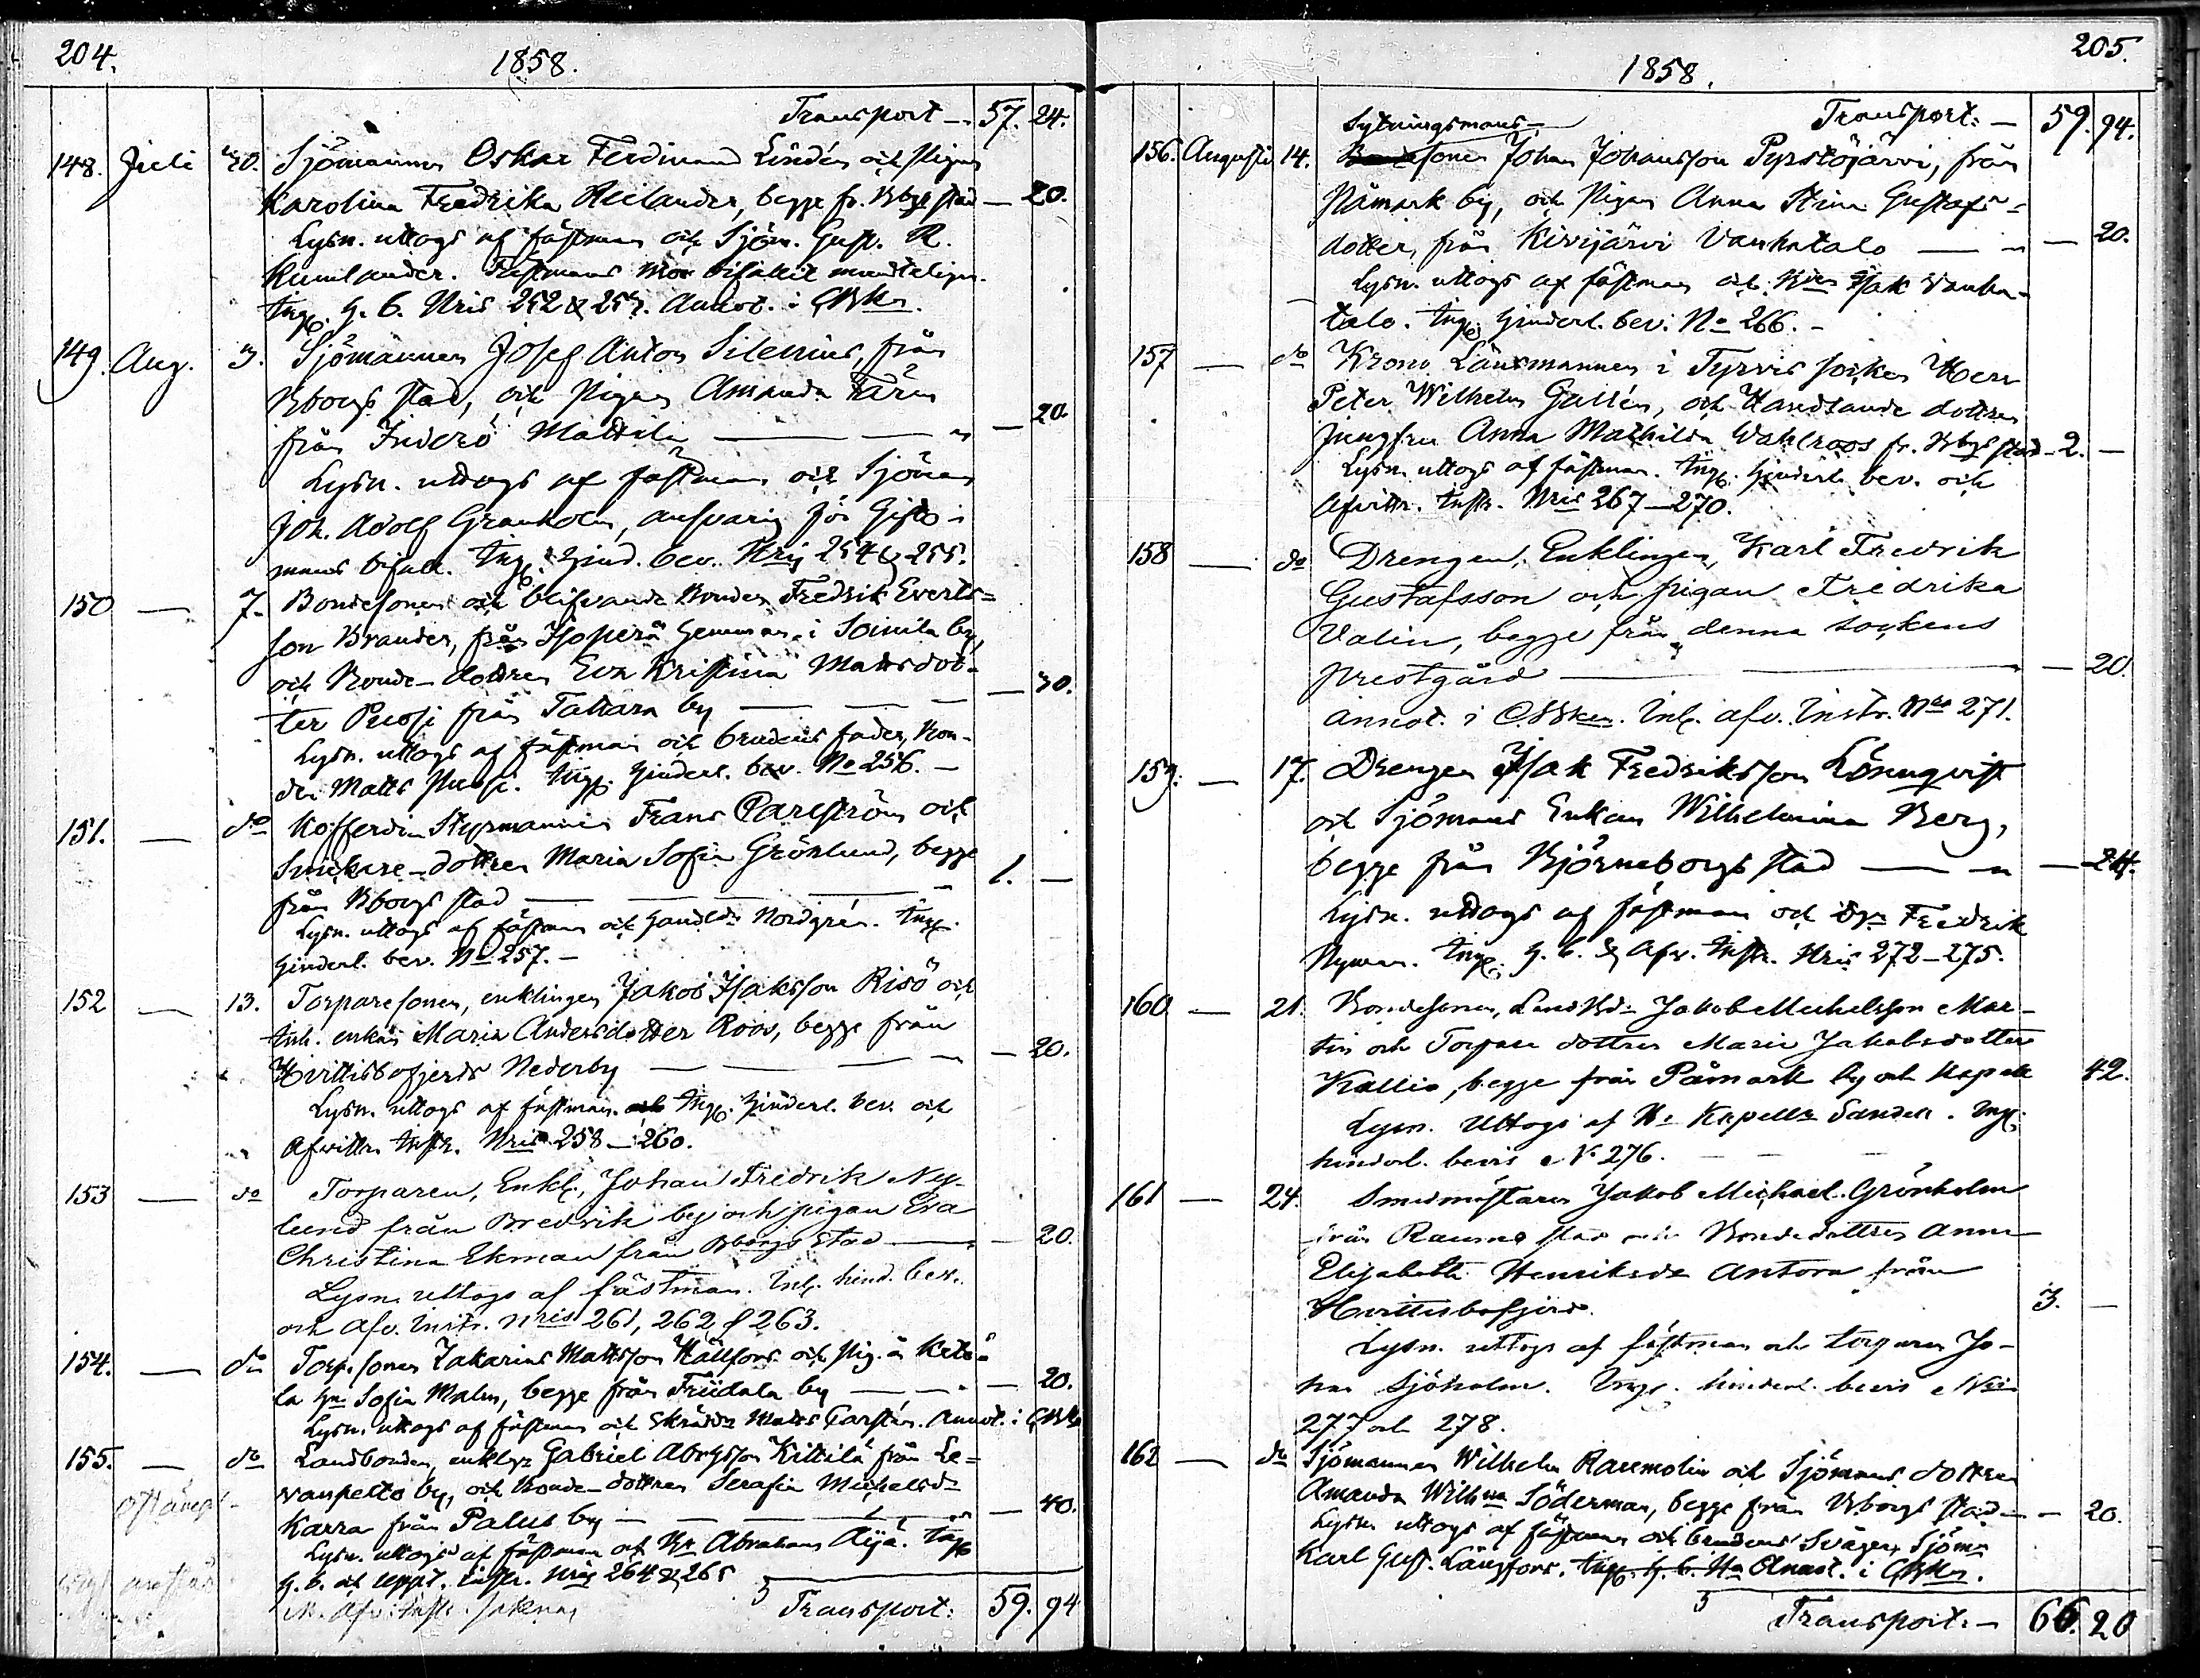 204.
1858.
Transport — 57. 24.
148. Juli 30. Sjömannen Oskar Ferdinand Lindén och Pigan
Karolina Fredrika Helander, begge fr. Bbgs stad — 20.
Lysn. uttogs af fästman och Sjöm. Gust. R.
Kumlander. Fästmans mor bifallit muntligen.
Ing. h. b. Nris 252 & 253. Annot. i CBken.
149. Aug. 3. Sjömannen Josef Anton Silenius, från
Bborgs stad, och Pigan Amanda
från Inderö Mattila — 20.
Lysn. uttogs af fästman och Sjöman
Joh. Adolf Granholm, ansvarig för Gifto-
mans bifall. Ing. hind. bev. Nris 254 & 255.
150 — 7. Bondesonen och blifvande Bonden Fredrik Everts-
son Brander, från Isoperä hemman i Soinila by,
och Bonde-dottren Eva Kristina Mattsdot-
ter Puosi från Tattara by — 30.
Lysn. uttogs af fästman och brudens fader, Bon-
den Matts Puosi. Ing. hinderl. bev. No 256. —
151. — do Kofferdi Styrmannen Frans Carlström och
Snickare-dottren Maria Sofia Grönlund, begge
från Bborgs stad — 1. —
Lysn. uttogs af fästman och Handl. Nordgrén. Ing.
hinderl. bev. No 257. —
152 — 13. Torparesonen, enklingen Jakob Isaksson Risö och
Inh. enkan Maria Andersdotter Roos, begge från
Hvittisbofjerds Nederby — 20.
Lysn. uttogs af fästman. Ing. hinderl. bev. och
Afvittr. Instr. Nris 258—260.
153 — do Torparen, Enkl., Johan Fredrik Ny-
lund från Bredvik by och pigan Eva
Christina Ekman från Bborgs Stad — 20.
Lysn. uttogs af fästman. Inl. hind. bev.
och afv. Instr. Nris 261, 262 & 263.
154. — do Torp.sonen Zakarias Mattsson Hällfors och Pig. å
la Sofia Malm, begge från Friidala by — 20.
Lysn. uttogs af fästman och Skrädd. Matts Carstén. Annot. i CBken
155. — do Landbonden, enkl. Gabriel Abrahsson Kittilä från Le-
vanpelto by, och Bonde-dottren Serafia Michelsdr
Karra från Palus by — 40.
Lysn. uttogs af fästman och Abraham Äijä. Ing.
h. b. och uppt. instr. Nris 264 & 265
Transport: 59. 94
205.
1858.
Transport: — 59. 94.
Sytningsmans-
156. Augusti 14. Bondesonen Johan Johansson Pyrstöjärvi, från
Påmark by, och Pigan Anna Stina Gustafs-
dotter, från Kivijärvi Vanhatalo — 20.
Lysn. uttogs af fästman och Isak Vanha-
talo. Ing. hinderl. bev. No 266. —
157 — do Krono Länsmannen i Tyrvis socken Herr
Peter Wilhelm Gallén, och Handlande dottren
Jungfru Anna Mathilda Wahlroos fr. Bbgs stad — 2. —
Lysn. uttogs af fästman. Ing. hinderl. bev. och
Afvittr. Instr. Nris 267—270.
158 — do Drengen, Enklingen, Karl Fredrik
Gustafsson och pigan Fredrika
Valin, begge från denna sockens
prestgård — 20.
Annot. i CBken. Inl. afv. Instr. No 271.
159. — 17. Drengen Isak Fredriksson Lönnqvist
och Sjömans Enkan Wilhelmina Berg,
begge från Björneborgs stad — 24.
Lysn. uttogs af fästman och Fredrik
Nyman. Ing. h. b. & Afv. Instr. Nris 272—275.
160 — 21. Bondesonen, Landbd. Jakob Michelsson Mar-
tin och Torpare dottren Maria Jakobsdotter
Kallio, begge från Påmark by och Kapell 42.
Lysn. uttogs af Sandell. Ing.
hinderl. bevis No 276.
161 — 24. Smedmästaren Jakob Michael Grönholm
från Raumo stad och Bondedottren Anna
Elisabeth Henriksdr Antora från
Hvittisbofjerd. 3. —
Lysn. uttogs af fästman och torparen Jo-
han Sjöholm. Ing. hinderl. bevis Nris
277 och 278.
162 — do Sjömannen Wilhelm Raremolin och Sjömans dottren
Amanda Wilhna Söderman, begge från Bborgs stad — 20.
Lysn. uttogs af fästman och brudens Svåger, Sjöm.
Karl Gust. Långfors. Ing. h. b. Annot. i CBken.
Transport: — 66. 20